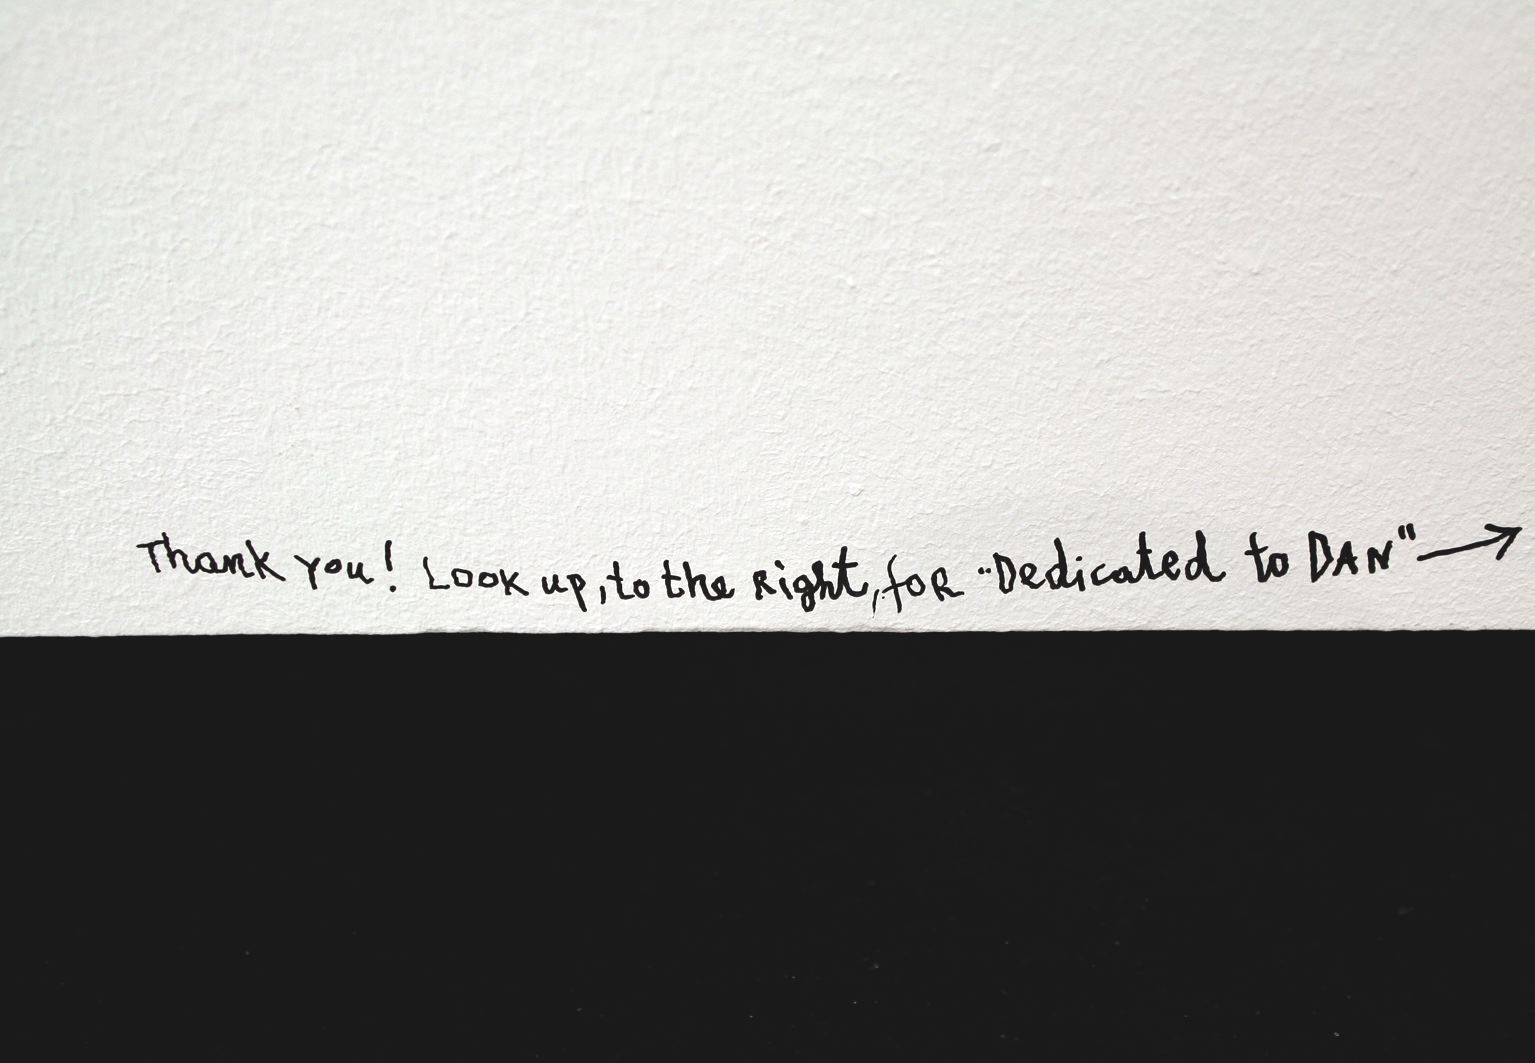 Thank you! Look up, to the Right, foR "Dedicated to DAN" →